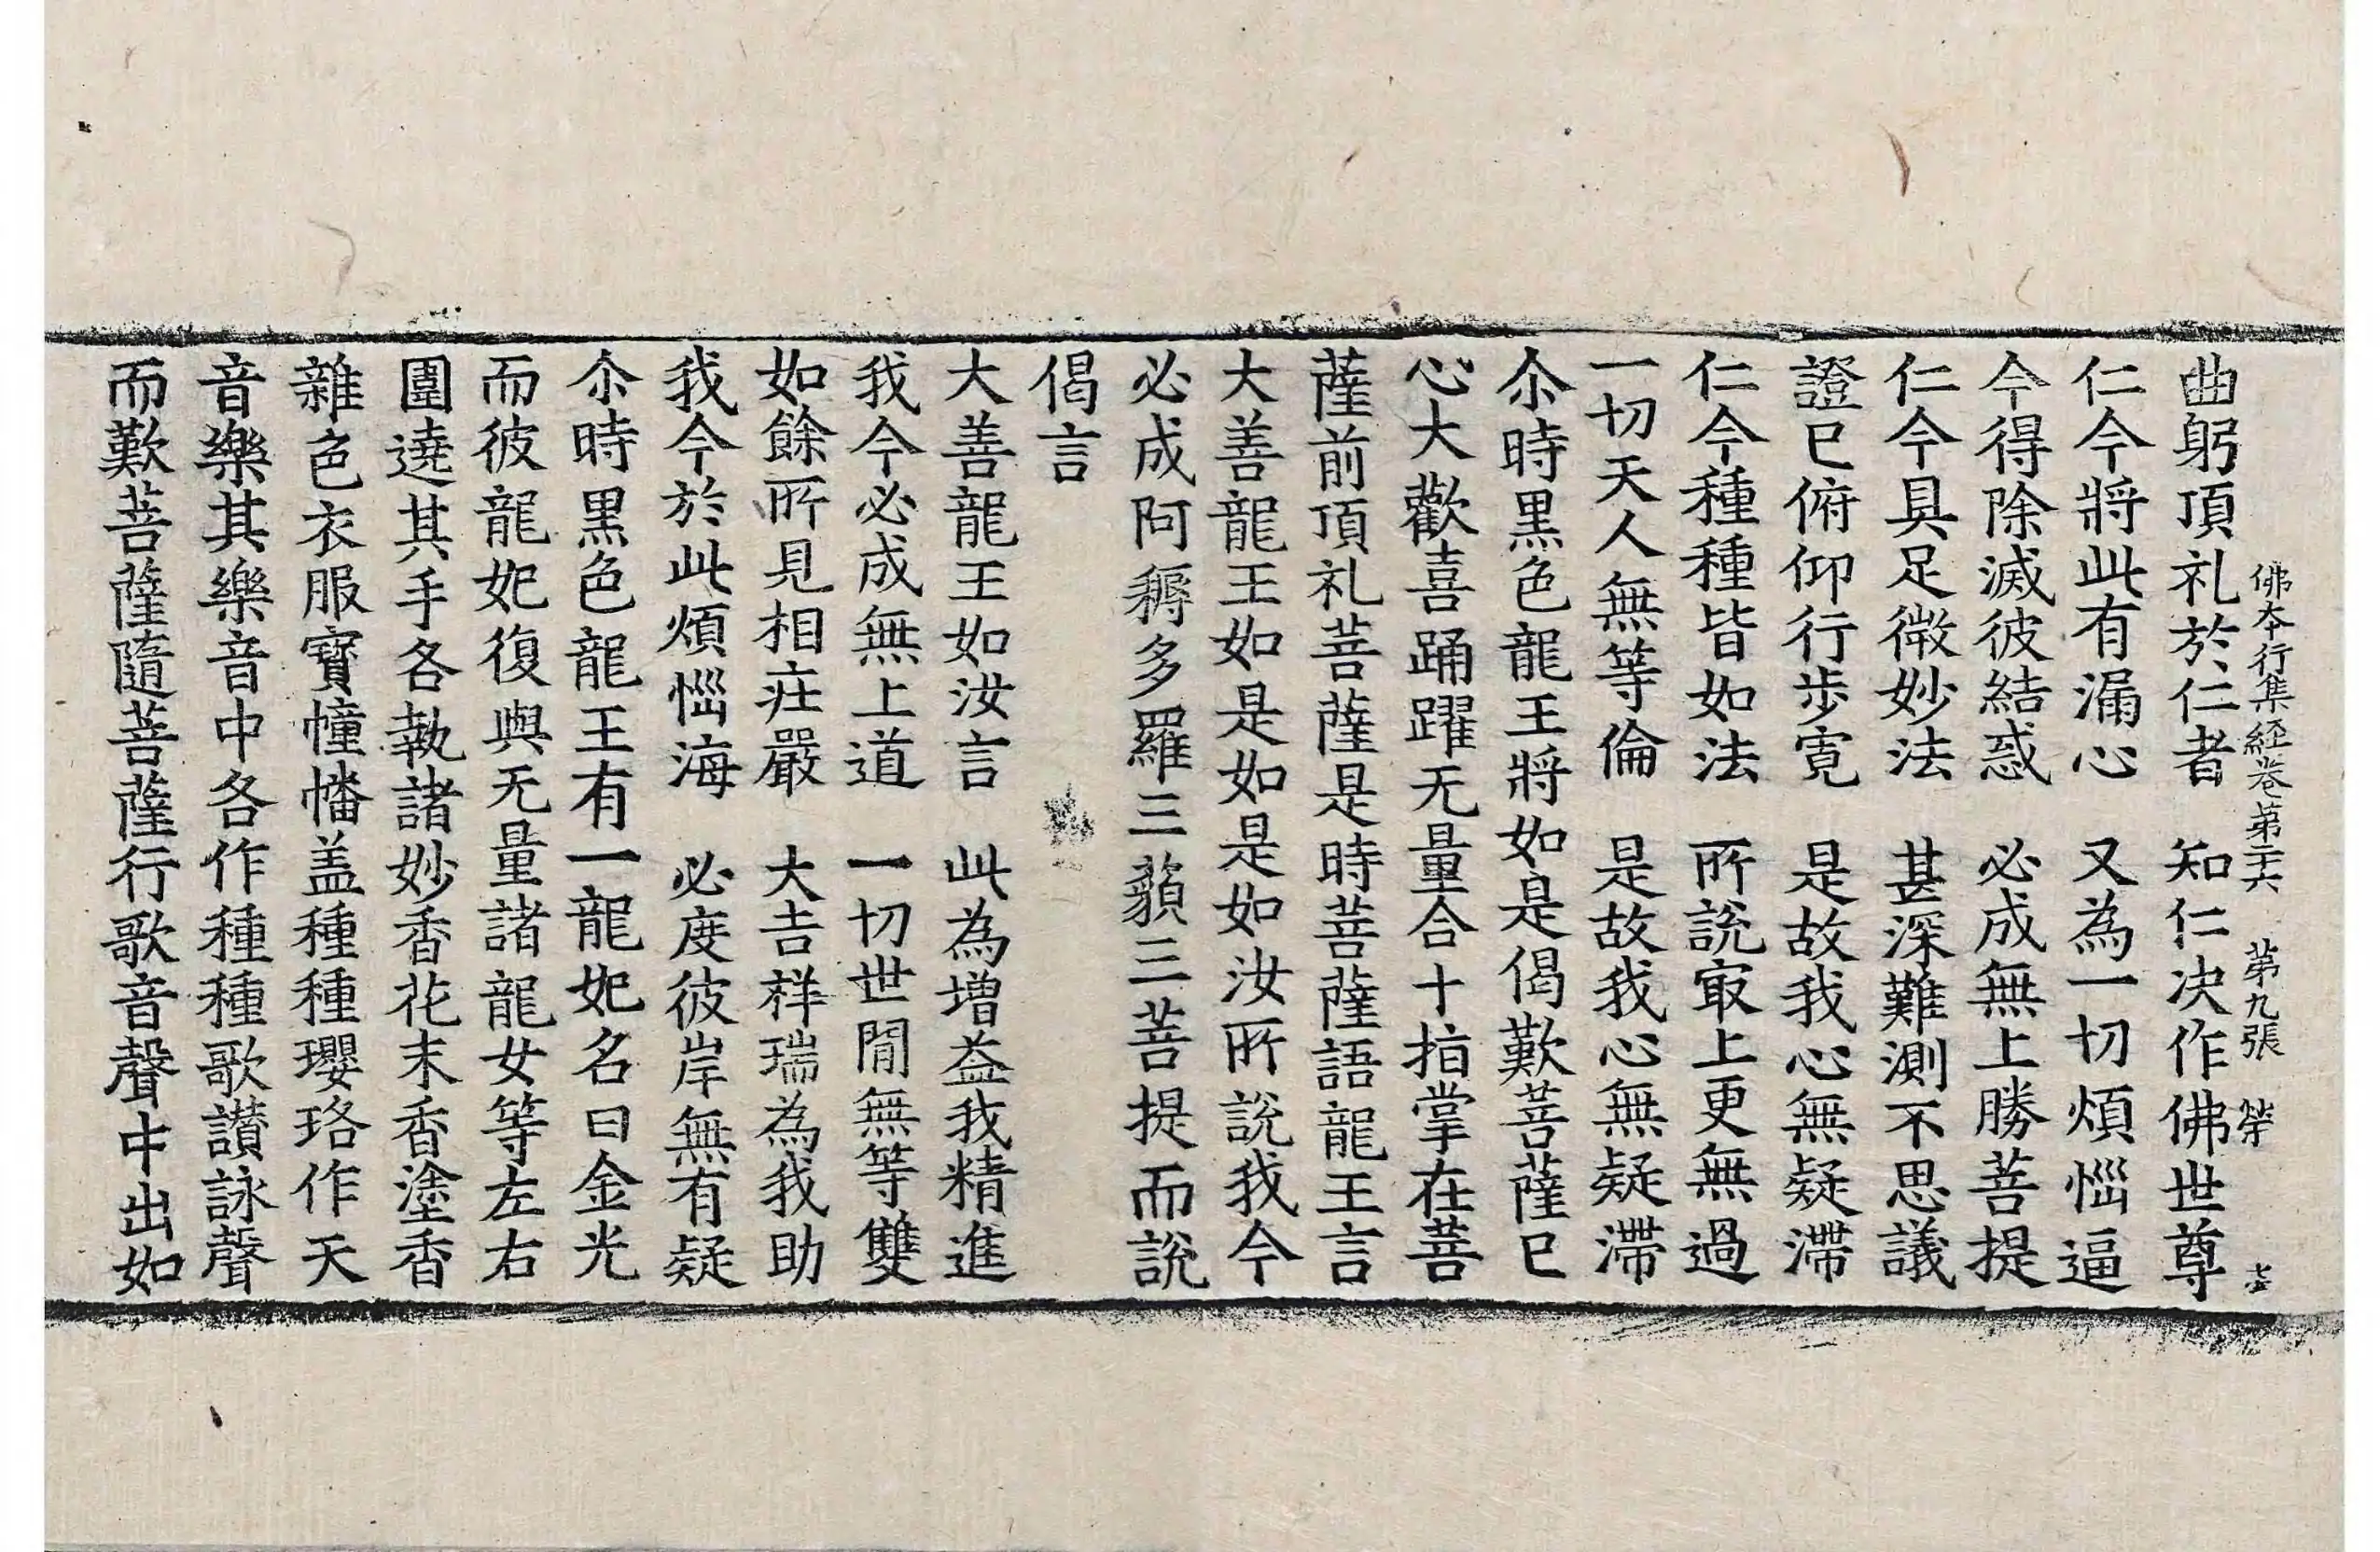 佛本行集經卷第二十六 第九張
曲躬頂礼於仁者 知仁决作佛世尊
仁今將此有漏心 又為一切煩惱逼
今得除滅彼結惑 必成無上勝菩提
仁今具足微妙法 甚深難測不思議
證已俯仰行步寬 是故我心無疑滯
仁今種種皆如法 所說㝡上更無過
一切天人無等倫 是故我心無疑滯
尒時黒色龍王將如是偈歎菩薩已
心大歡喜踊躍无量合十指掌在菩
薩前頂礼菩薩是時菩薩語龍王言
大善龍王如是如是如汝所說我今
必成阿耨多羅三藐三菩提而說
偈言
大善龍王如汝言 此為增益我精進
我今必成無上道 一切世閒無等雙
如餘所見相莊嚴 大吉祥瑞為我助
我今於此煩惱海 必度彼岸無有疑
尒時黒色龍王有一龍妃名曰金光
而彼龍妃復與无量諸龍女等左右
圍遶其手各執諸妙香花末香塗香
雜色衣服寶幢幡盖種種瓔珞作天
音樂其樂音中各作種種歌讃詠聲
而歎菩薩隨菩薩行歌音聲中出如